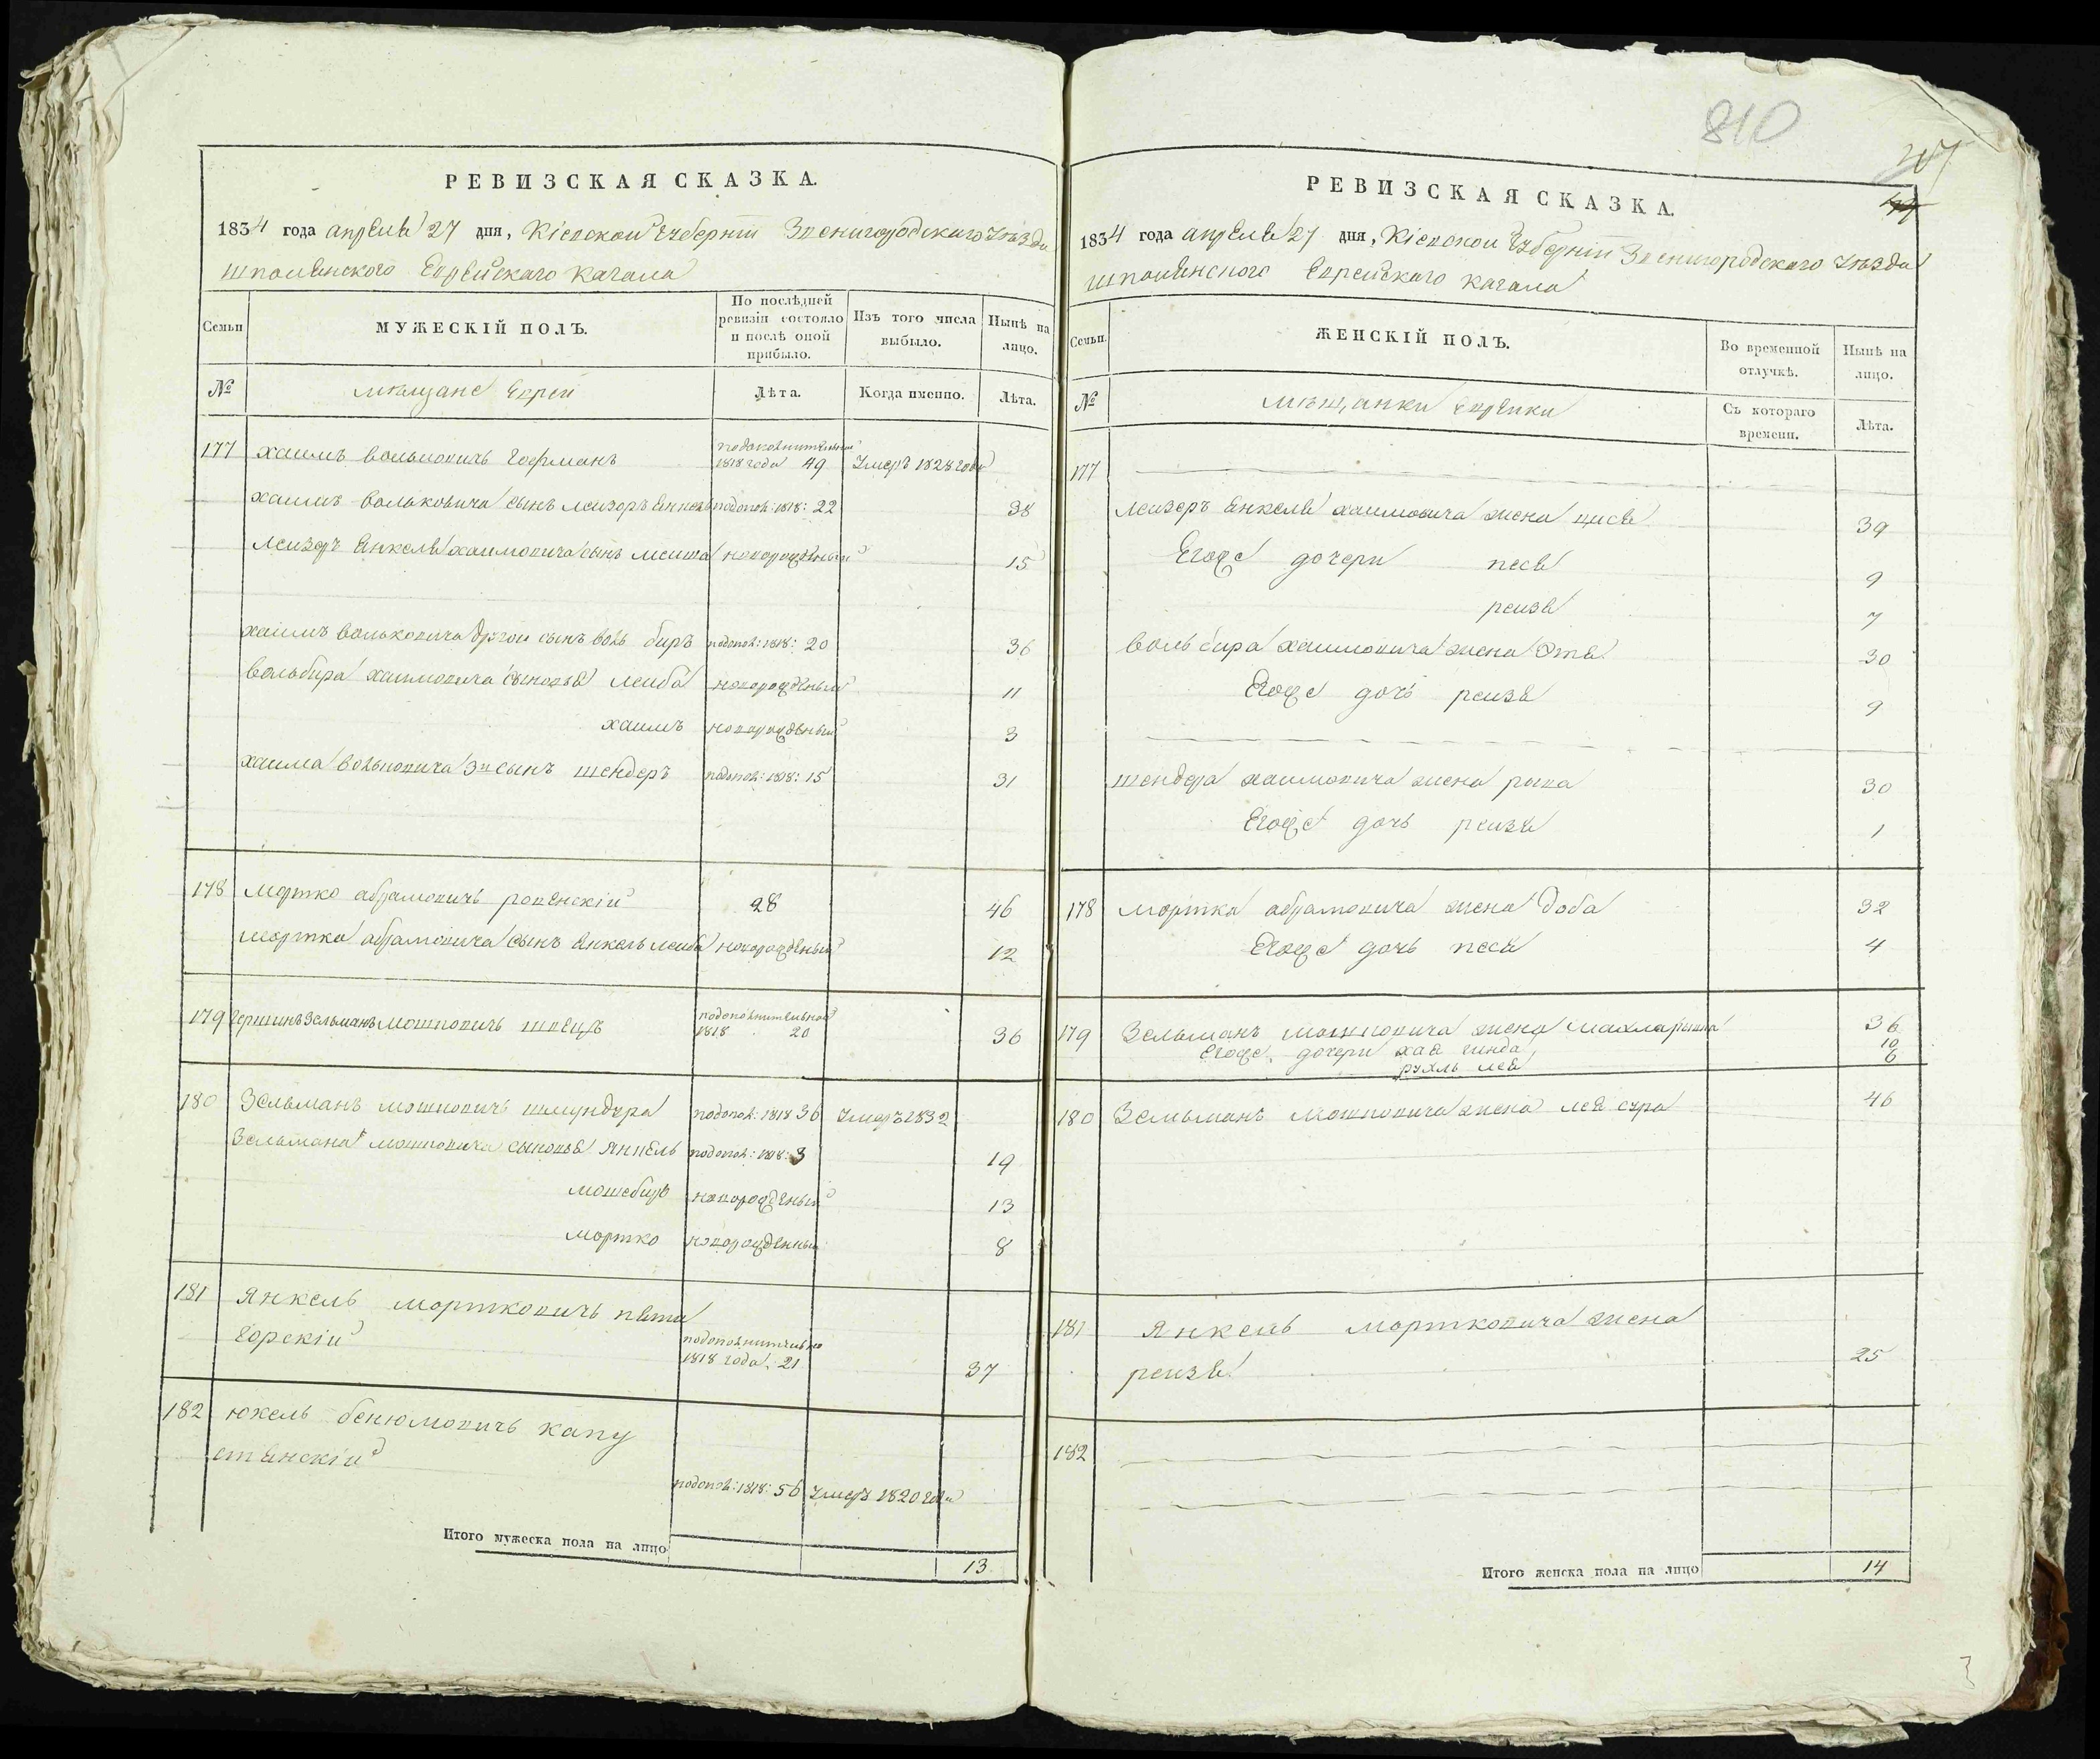 РЕВИЗСКАЯ СКАЗКА.
1834 года апреля 27 дня, Кіевской Губерніи Звенигородского Уѣзда
шполянского Еврейскаго кагала
Семьи
МУЖЕСКІЙ ПОЛЪ.
По послѣдней ревизіи состояло и послѣ оной прибыло.
Изъ того числа выбыло.
Нынѣ на лицо.
№
мѣщане Евреи
Лѣта.
Когда именно.
Лѣта.
177 хаимъ волковичъ гофманъ подополнительной 1818 года 49 Умеръ 1828 года
хаимъ Вольковича сынъ леизоръ Янкель подопол: 1818: 22 38
Леизоръ Янкеля хаимовича сынъ менша новорожденный 15
хаимъ вольковича другои сынъ воль биръ подопол: 1818: 20 36
Вольбира хаимовича сыновья леиба новорожденный 11
хаимъ новорожденный 3
хаима вольковича 3й сынъ шендеръ подопол: 1818: 15 31
178 мортко абрамовичъ ровенскій 28 46
мортка абрамовича сынъ Янкель леиба новорожденный 12
179 Гершикъ Зельманъ мошковичъ швецъ подополнительной 1818 20 36
180 Зельманъ мошковичъ подопол: 1818 36 Умеръ 1832
Зельмана мошковича сыновья Янкель подопол: 1818: 3 19
мошебиръ новорожденный 13
мортко новорожденный 8
181 Янкель мортковичъ пяти
горскій подополнительно 1818 года 21 37
182 юкель бенюмовичъ капу
стянскій
подопол: 1818: 56 Умеръ 1820 года
Итого мужеска пола на лицо 13
810
РЕВИЗСКАЯ СКАЗКА.
1834 года апреля 27 дня, Кіевской Губерніи Звенигородского Уѣзда
шполянского Еврейскаго кагала
Семьи.
ЖЕНСКІЙ ПОЛЪ.
Во временной отлучкѣ.
Нынѣ на лицо.
№
мѣщанки Еврейки
Съ котораго времени.
Лѣта.
177
Леизеръ Янкеля хаимовича жена цися 39
Егоже дочери песя 9
реизя 7
Воль бира хаимовича жена Этя 30
Егоже дочь реизя 9
шендера хаимовича жена рива 30
Егоже дочь реизя 1
178 мортка абрамовича жена доба 32
Егоже дочь песя 4
179 Зельманъ мошковича жена махла 36
Егоже дочери хая гинда 10
рухль лея 6
180 Зельманъ мошковича жена лея сура 46
181 Янкель мортковича жена
реизя 25
182
Итого женска пола на лицо 14